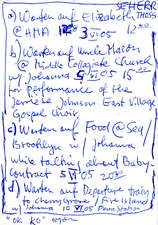 SEHERR
a) Warten auf Elizabeth THOS
@ HMA 3 VI 05 12 00
b) Warten auf Uncle Mason
@ Middle Collegiate Church
w/ Johanna 5 VI 05 15 00
for Performance of the
Jerriese Johnson East Village
Gospel Choir
c) Warten auf Food @ Sea
Brooklyn w/ Johanna
while talking about Baby-
contract 5 VI 05 20
d) Warten auf Departure train
to Cherry Grove / Fire Island
w/ Johanna 10 VI 05 Penn Station
"OK KO"